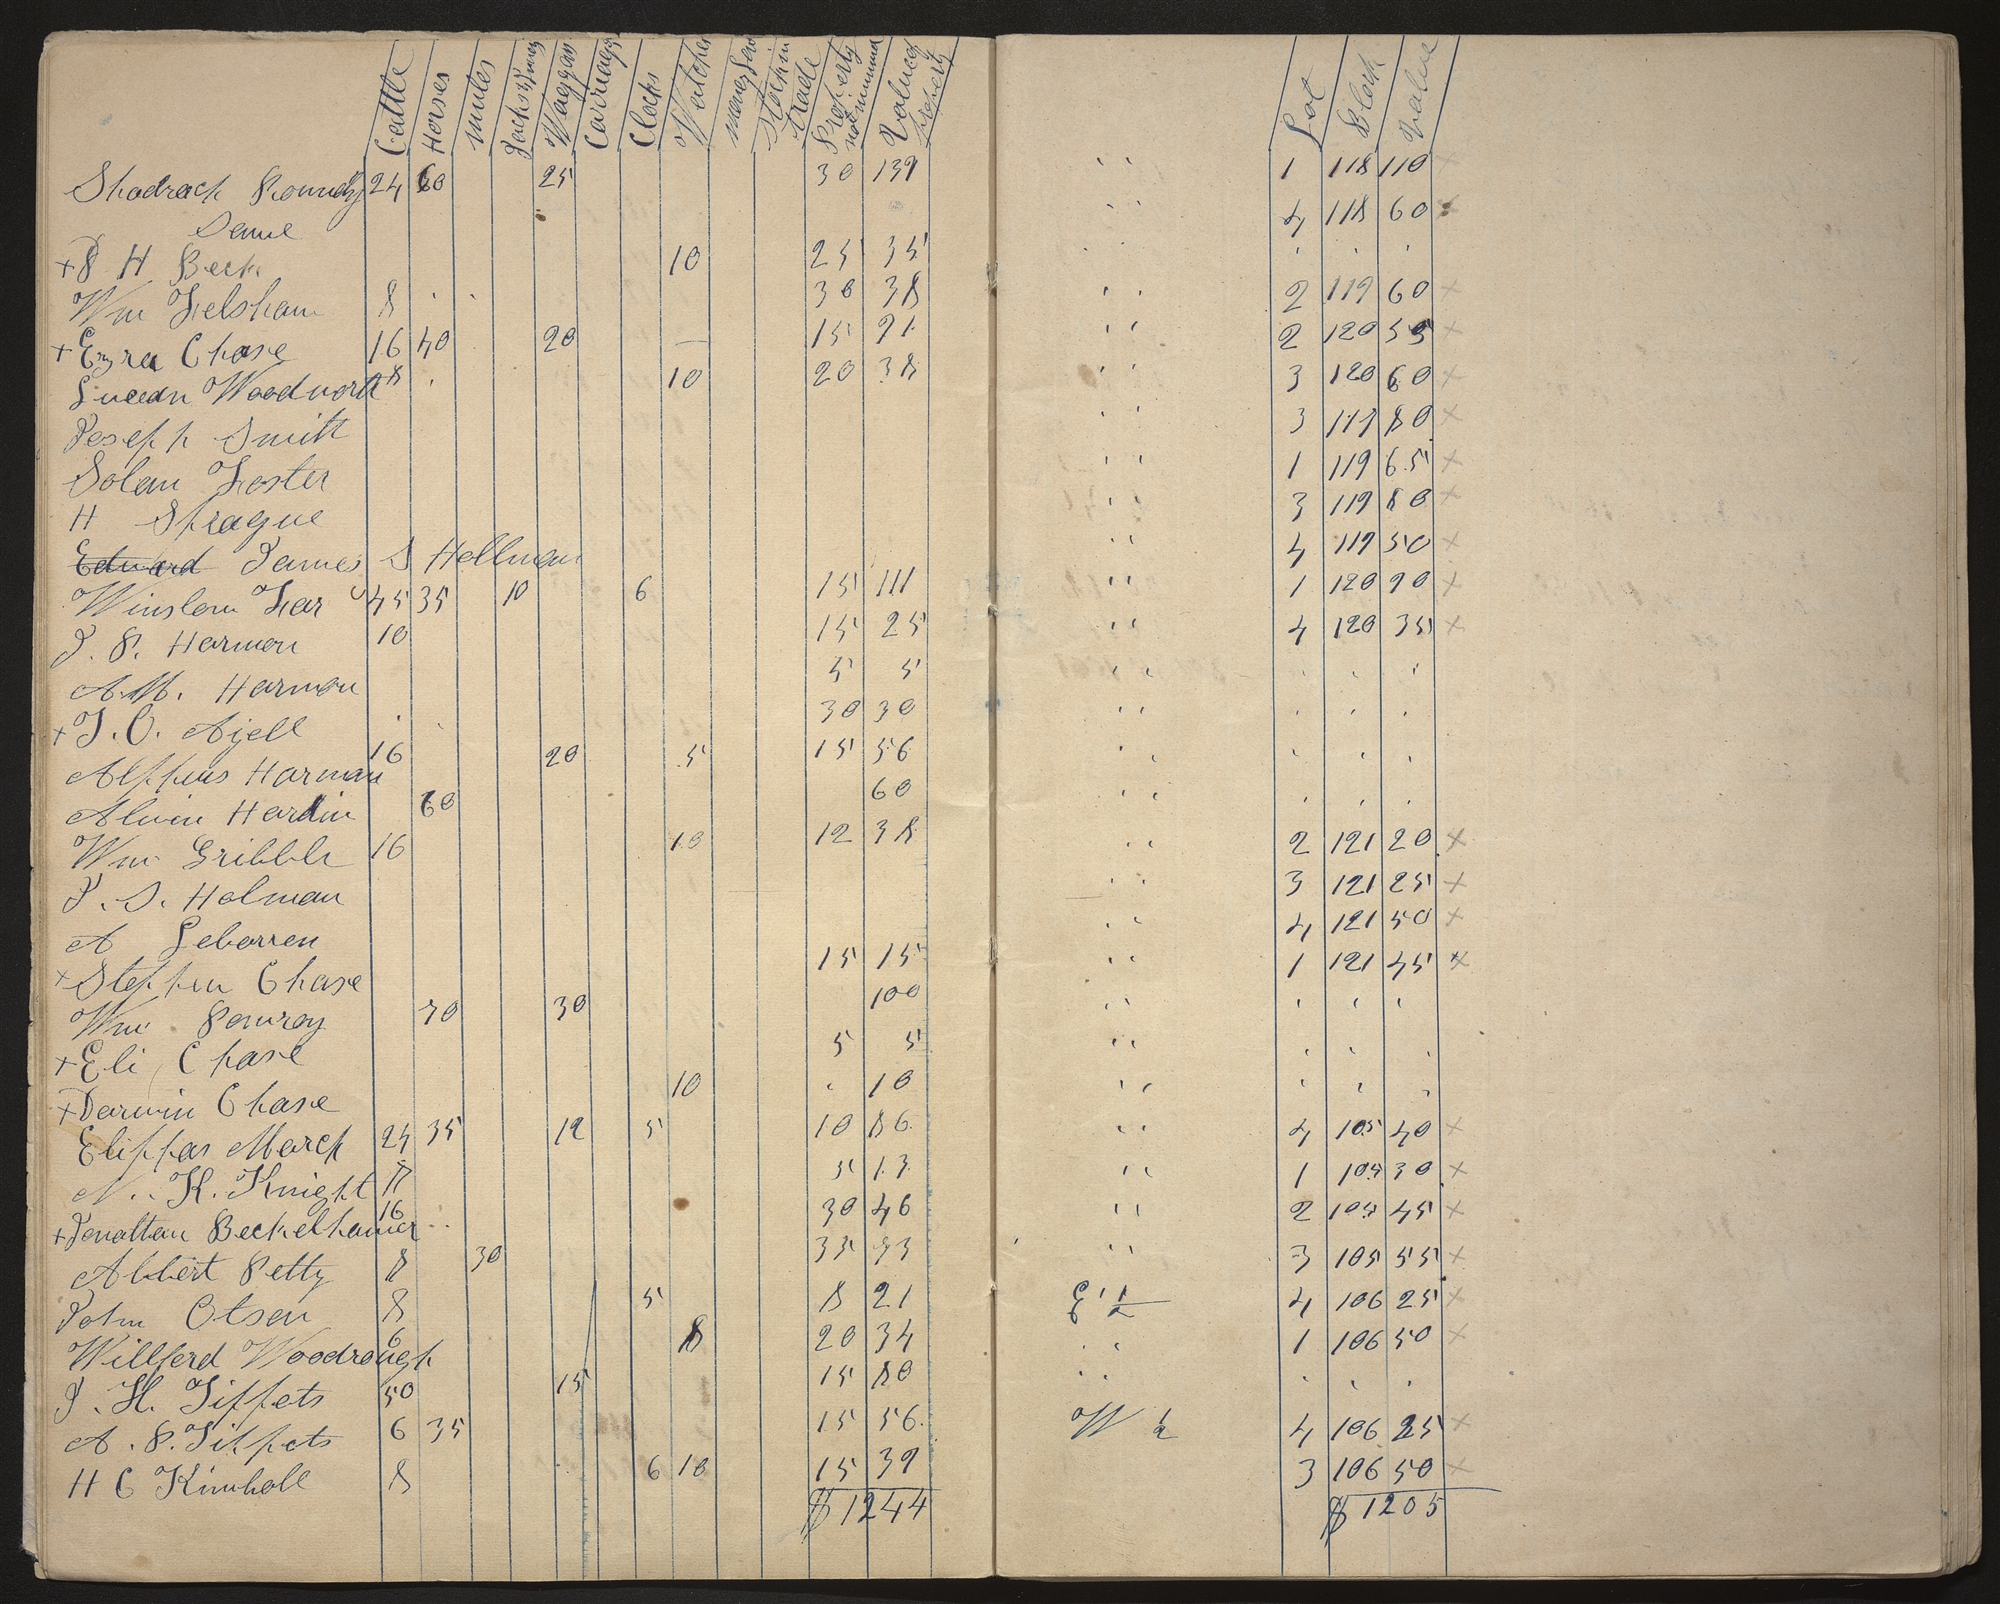 Cattle Horses mules Jacks & Jinneys Waggons Carriages Clocks Watches money Stock in trade Property not enumerated Value of property Lot Block Value
Shadrach Roundy 24 60 25 30 139 " 1 118 110 ×
Same " 4 118 60 ×
+ J H Beck 10 25 35
Wm Felsham 8 30 38 " 2 119 60 ×
+ Ezra Chase 16 40 20 — 15 91 " 2 120 55 ×
Lucean Woodworth 8 10 20 38 " 3 120 60 ×
Joseph Smith " 3 117 80 ×
Solam Foster " 1 119 65 ×
H Sprague " 3 119 80 ×
Edward James S Hollman " 4 119 50 ×
Winslow Far 45 35 10 6 15 111 " 1 120 90 ×
J. P. Harmon 10 15 25 " 4 120 35 ×
A. M. Harmon 5 5 "
+ T. O. Ajell 30 30 "
Alpheus Harman 16 20 5 15 56 "
Alvin Hardin 60 60 "
Wm Gribble 16 10 12 38 " 2 121 20 ×
J. S. Holman " 3 121 25 ×
A Lebarren " 4 121 50 ×
+ Stephen Chase 15 15 " 1 121 45 ×
Wm Pomroy 70 30 100 "
+ Eli Chase 5 5 "
+ Darwin Chase 10 10 "
Eliphas March 24 35 12 5 10 86 " 4 105 40 ×
N. K. Knight 8 5 13 " 1 105 30 ×
+ Jonathan Beckelhamer 16 30 46 " 2 105 45 ×
Albert Petty 8 30 35 73 " 3 105 55 ×
John Otsen 8 5 8 21 E 1/2 4 106 25 ×
Willferd Woodrough 6 8 20 34 " 1 106 50 ×
J. H. Tippets 50 15 15 80 "
A. P. Tippets 6 35 15 56 W 1/2 4 106 25 ×
H C Kimball 8 6 10 15 39 3 106 50 ×
$ 1244 $ 1205